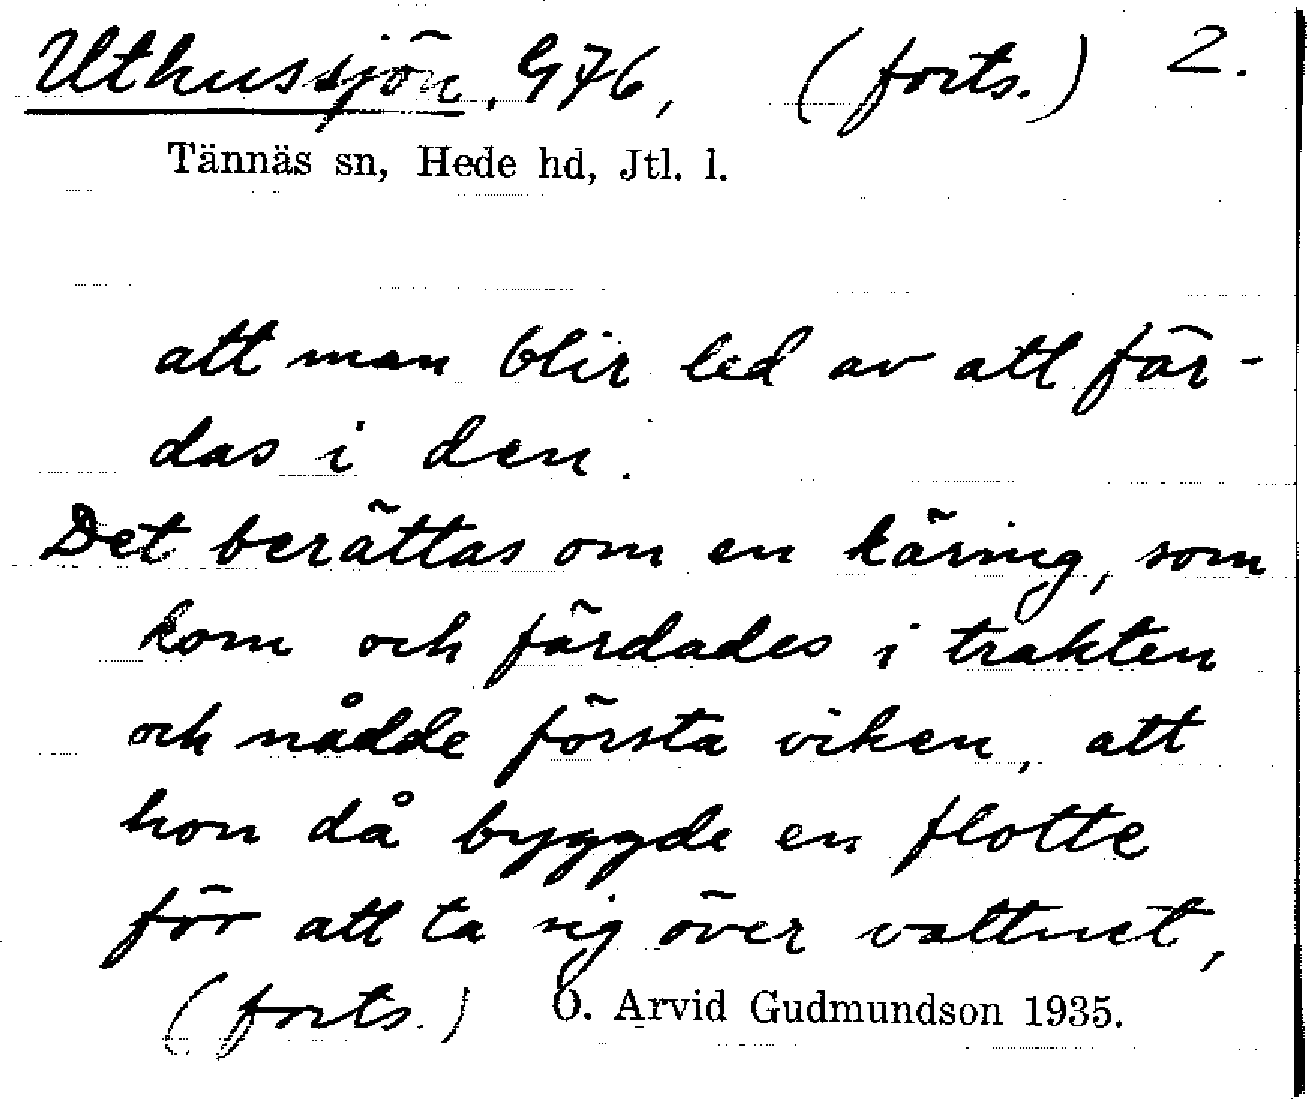 Uthussjön, G76, (forts.) 2.
Tännäs sn, Hede hd, Jtl. l.
att man blir led av att fär-
das i den.
Det berättas om en käring, som
kom och färdades i trakten
och nådde första viken, att
hon då byggde en flotte
för att ta sig över vattnet,
(forts.) O. Arvid Gudmundson 1935.